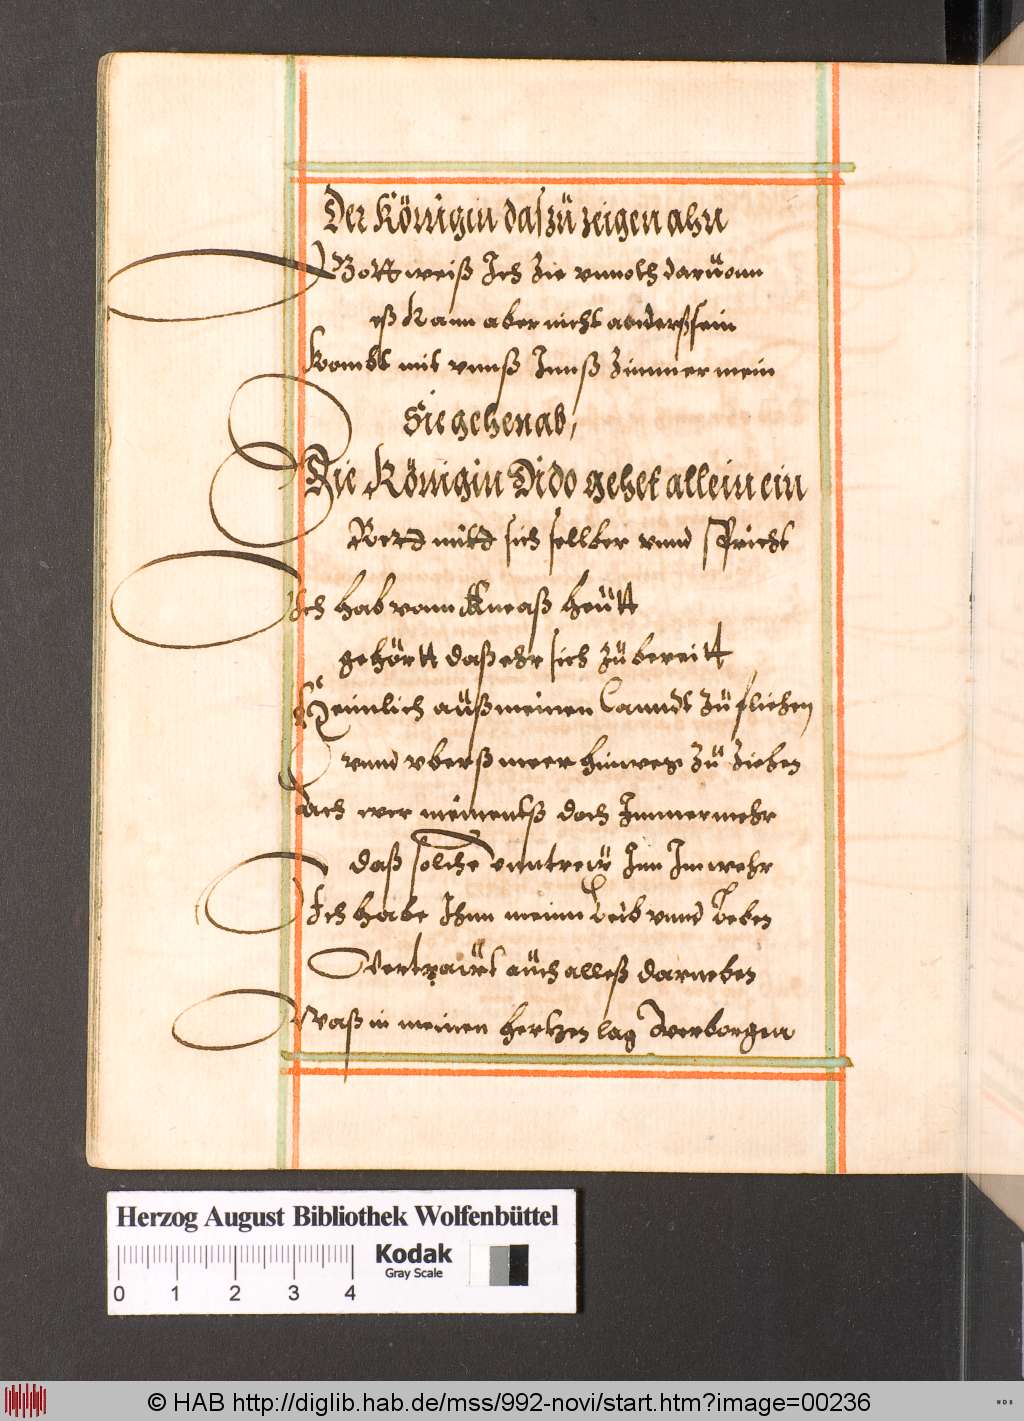 Der Königin das zu zeigen ahn
Gott weiß Ich Zie vnnoth daruonn
eß Kann aber nicht anderß sein
Kombt mit vnnß Innß Zimmer mein
Sie gehen ab,
Die Königin Dido gehet allein ein
Redt mitt sich sellber vnnd spricht
Ich hab vonn Æneaß heütt
gehörtt daß ehr sich zü bereitt
Heimlich aüß meinen Lanndt zü fliehen
vnnd vberß meer hinweg zü ziehen
Ach wer meinentß doch Immermehr
daß solche vnntreü Inn Im wehr
Ich habe Ihnn meinn Leib vnnd Leben
Vertraüt aüch alleß darneben
Waß in meinen hertzen lag verborgen
Herzog August Bibliothek Wolfenbüttel
Kodak
Gray Scale
0 1 2 3 4
© HAB http://diglib.hab.de/mss/992-novi/start.htm?image=00236